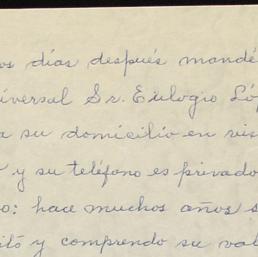 os días después mandé
iversal Sr. Eulogio Lóp
a su domicilio en vis
y su teléfono es privado
o: hace muchos años s
itó y comprendo su val